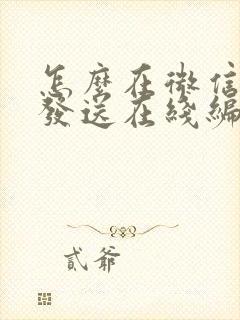 怎麼在微信
發送在綫編
貳爺